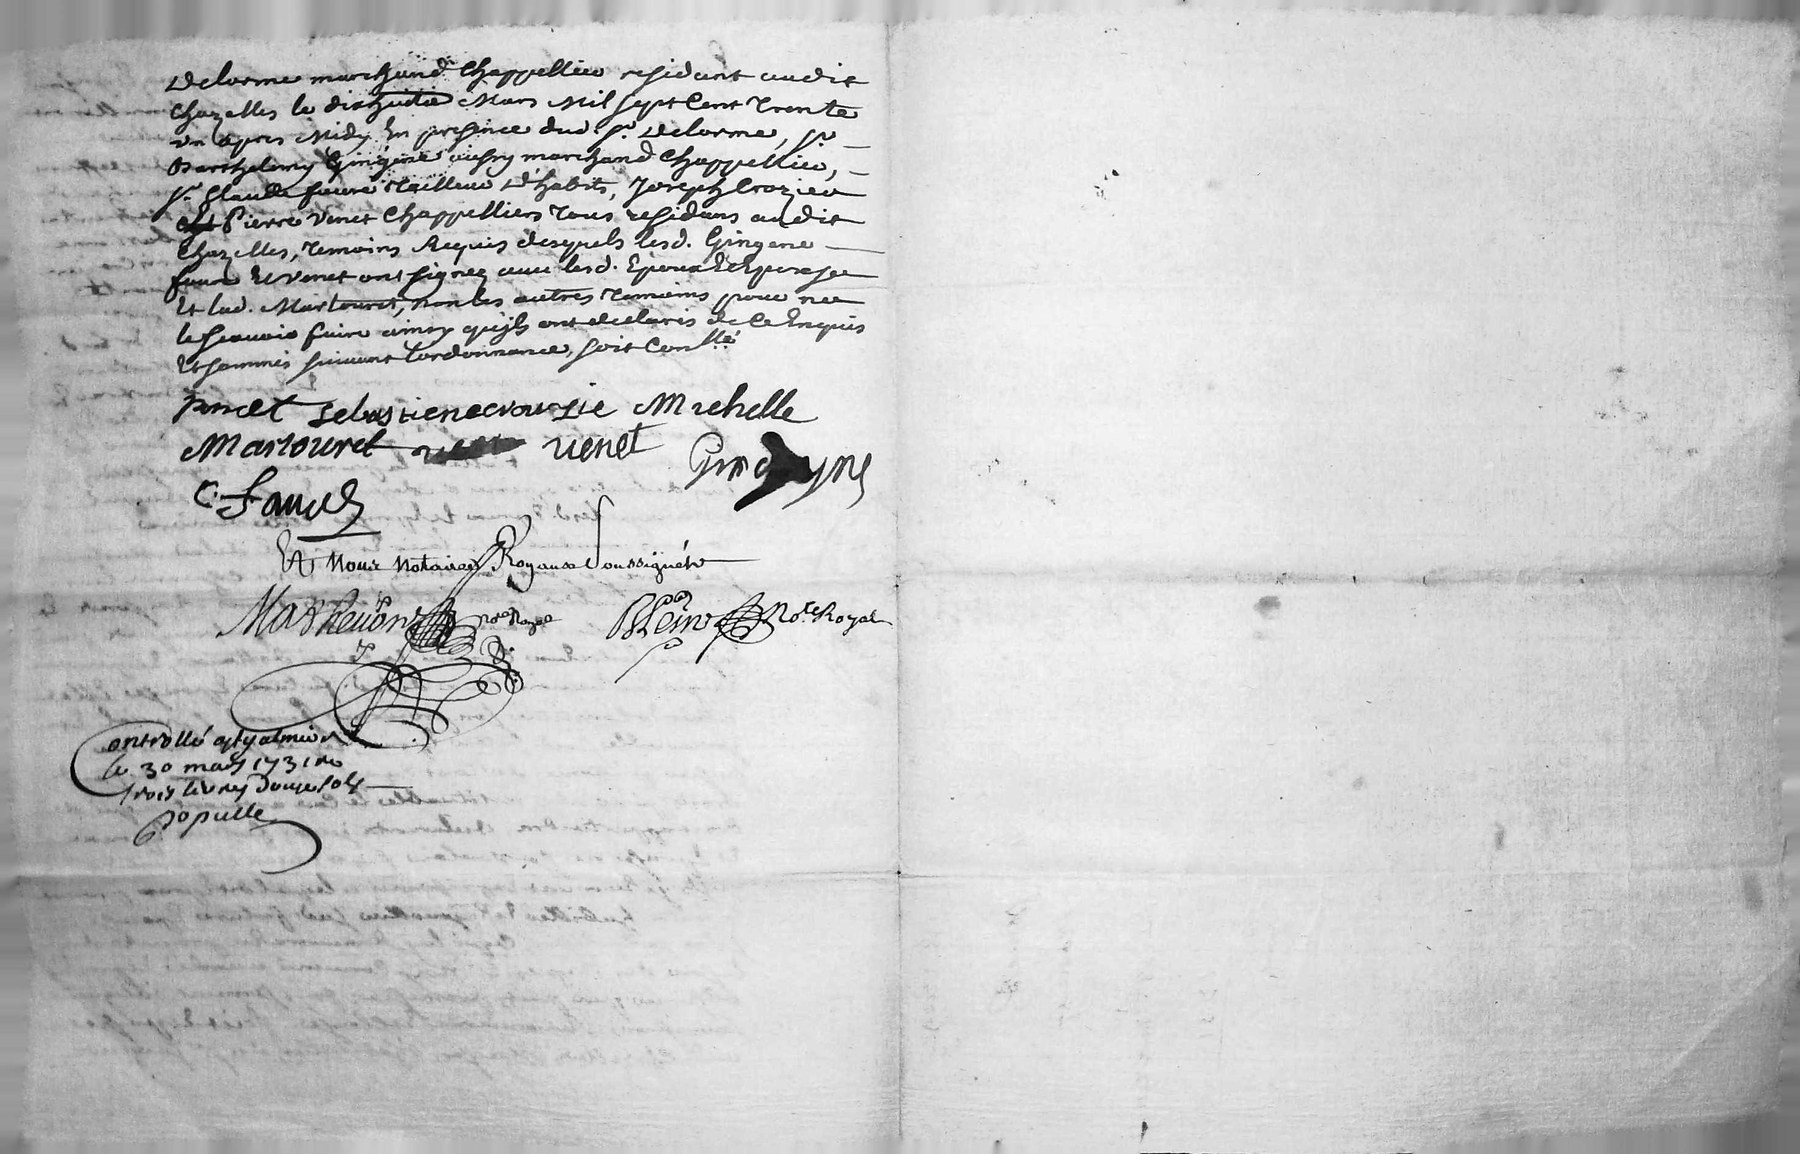 Delorme marchand Chappellier residant audit
Chazelles le dixhuitie Mars Mil sept Cent Trente
un apres Midy En presence dud. Sr. Delorme, Sr.
Barthelemy Gingene aussy marchand Chappellier,
Sr. Claude faure Tailleur D'habits, Joseph Crozier
Et Pierre Venet Chappelliers Tous residans audit
Chazelles, Temoins Requis desquels lesd. Gingene
faure Et Venet ont signez avec lesd. Epoux Et Epouse
Et lad. Martouret, non les autres Temoins pour ne
le scavoir faire ainsy quils ont declarés de Ce Enquis
Et sommés suivant lordonnance, soit Conllé
poncet sebastiene crousie Michelle
Martouret venet Gingeyne
C. Faure
Et Nous Notaires Royaux Soussignés
Mathevon Nore Royal No.re Royal
Controllé a st galmier
le 30 mars 1731 Re
trois livres Douze sols
populle